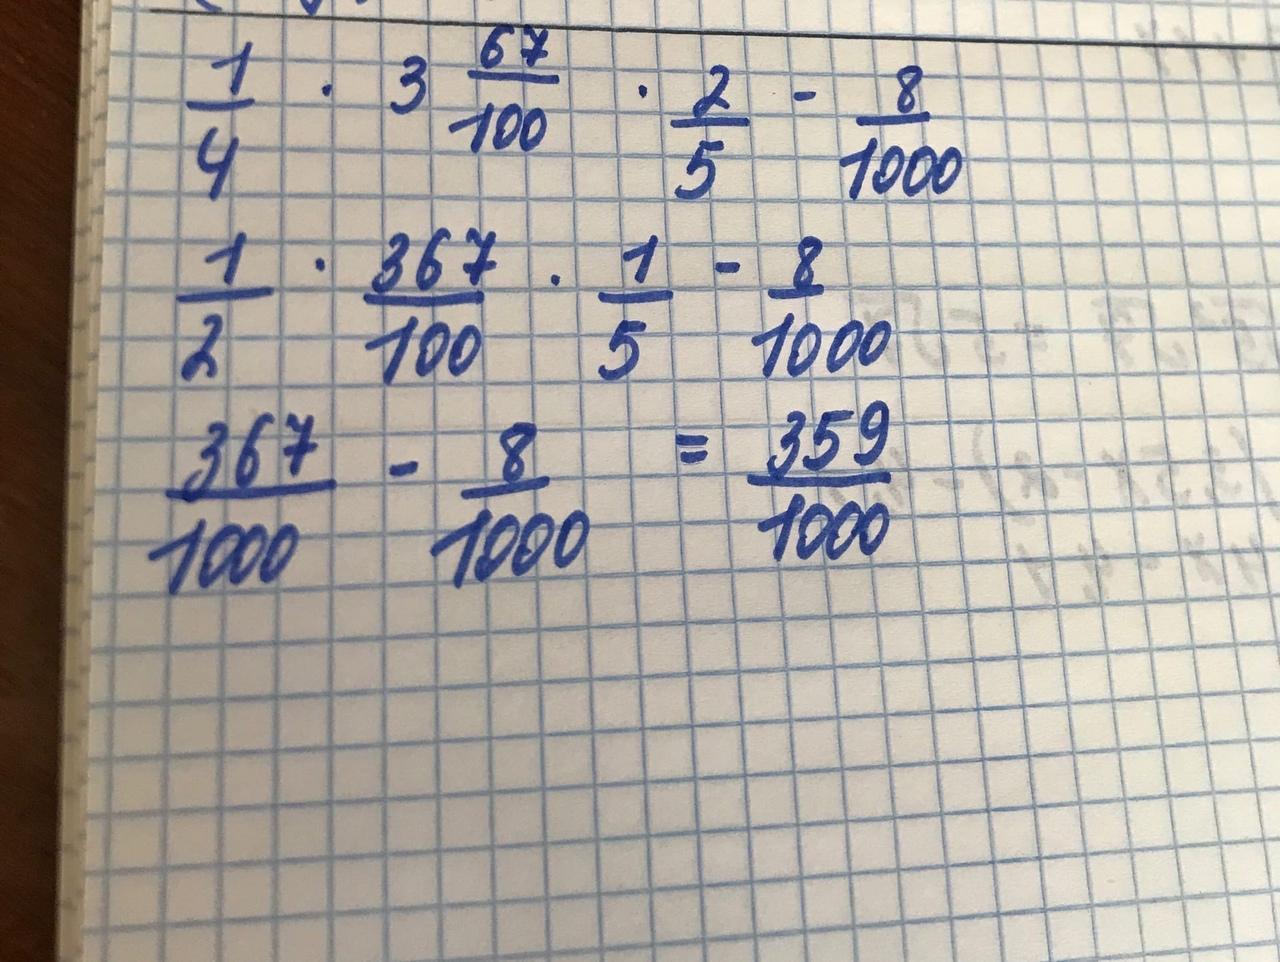 1/4 · 3 67/100 · 2/5 - 8/1000
1/2 · 367/100 · 1/5 - 8/1000
367/1000 - 8/1000 = 359/1000